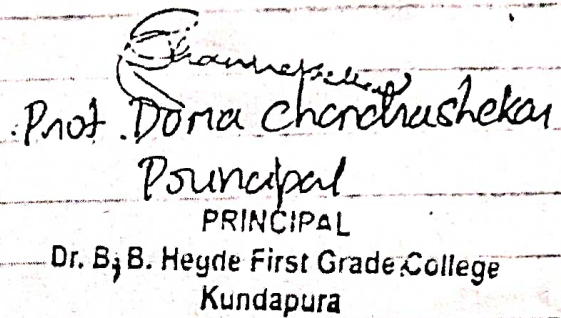 Prof. Doma Chandrashekar
Principal
PRINCIPAL
Dr. B. B. Hegde First Grade College
Kundapura